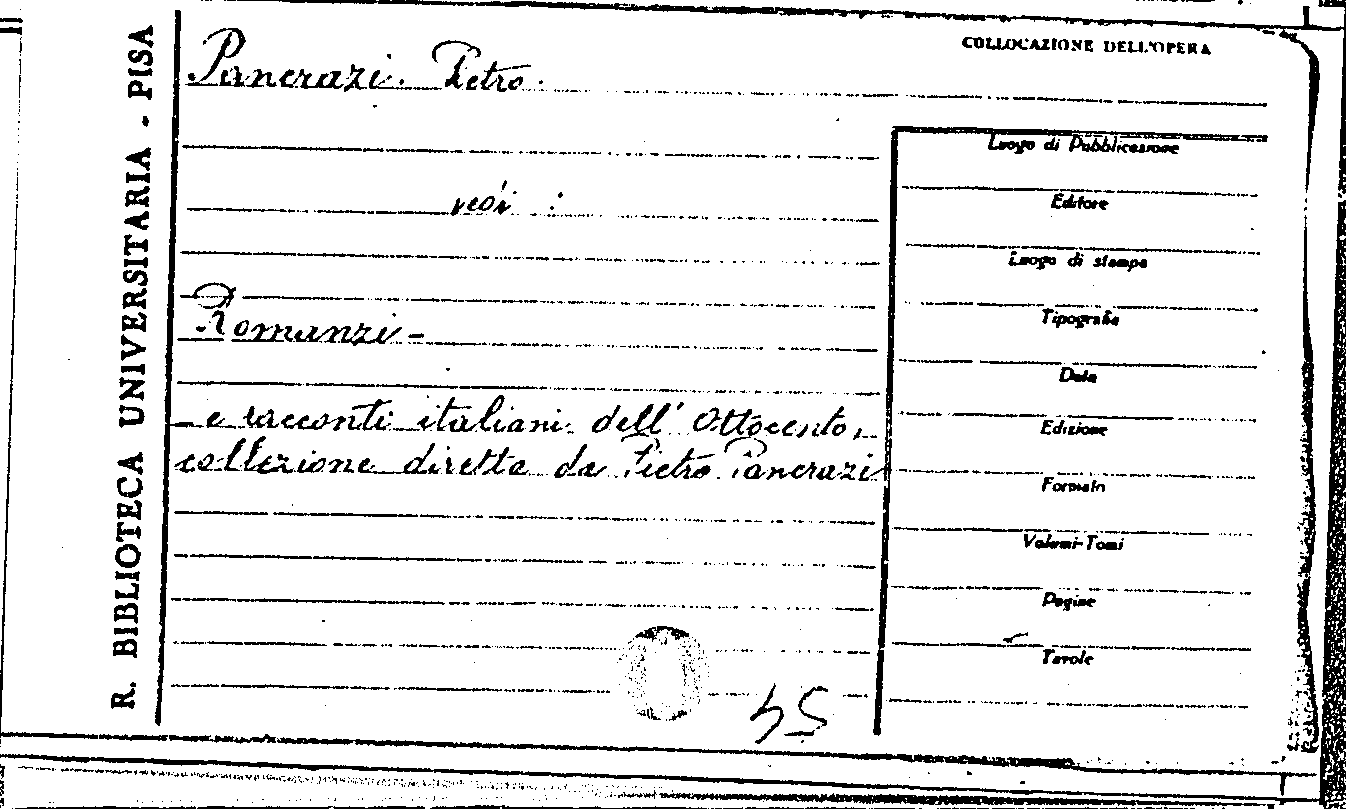 R. BIBLIOTECA UNIVERSITARIA - PISA
COLLOCAZIONE DELL'OPERA
Pancrazi. Pietro.
vedi :
Romanzi -
- e racconti italiani dell' Ottocento,
collezione diretta da Pietro Pancrazi
45
Luogo di Pubblicazione
Editore
Luogo di stampa
Tipografia
Data
Edizione
Formato
Volumi-Tomi
Pagine
Tavole